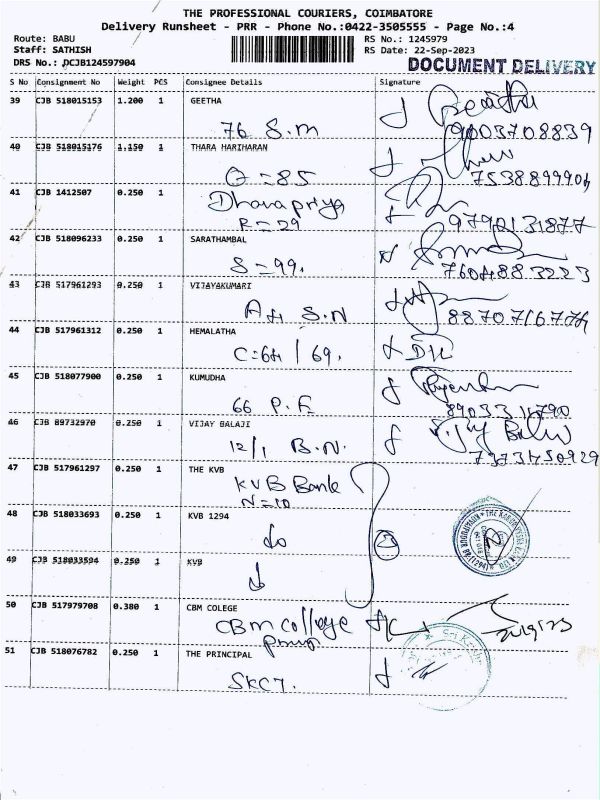 THE PROFESSIONAL COURIERS, COIMBATORE
Delivery Runsheet - PRR - Phone No.:0422-3505555 - Page No.:4
Route: BABU RS No.: 1245979
Staff: SATHISH RS Date: 22-Sep-2023
DRS No.: DCJB124597904 DOCUMENT DELIVERY
S No Consignment No Weight PCS Consignee Details Signature
39 CJB 518015153 1.200 1 GEETHA
76 S.M 9003708839
40 CJB 518015176 1.150 1 THARA HARIHARAN
G=85
41 CJB 1412507 0.250 1 Dharapriya
R=29 9790131877
42 CJB 518096233 0.250 1 SARATHAMBAL
S=99. 7604883223
43 CJB 517961293 0.250 1 VIJAYAKUMARI
S.N
44 CJB 517961312 0.250 1 HEMALATHA
C=64/69.
45 CJB 518077900 0.250 1 KUMUDHA
66
46 CJB 89732970 0.250 1 VIJAY BALAJI
12/1 B.N.
47 CJB 517961297 0.250 1 THE KVB
KVB Bank
N=10
48 CJB 518033693 0.250 1 KVB 1294
49 CJB 518033594 0.250 1 KVB
50 CJB 517979708 0.380 1 CBM COLEGE
CBM College
51 CJB 518076782 0.250 1 THE PRINCIPAL
SKCT.